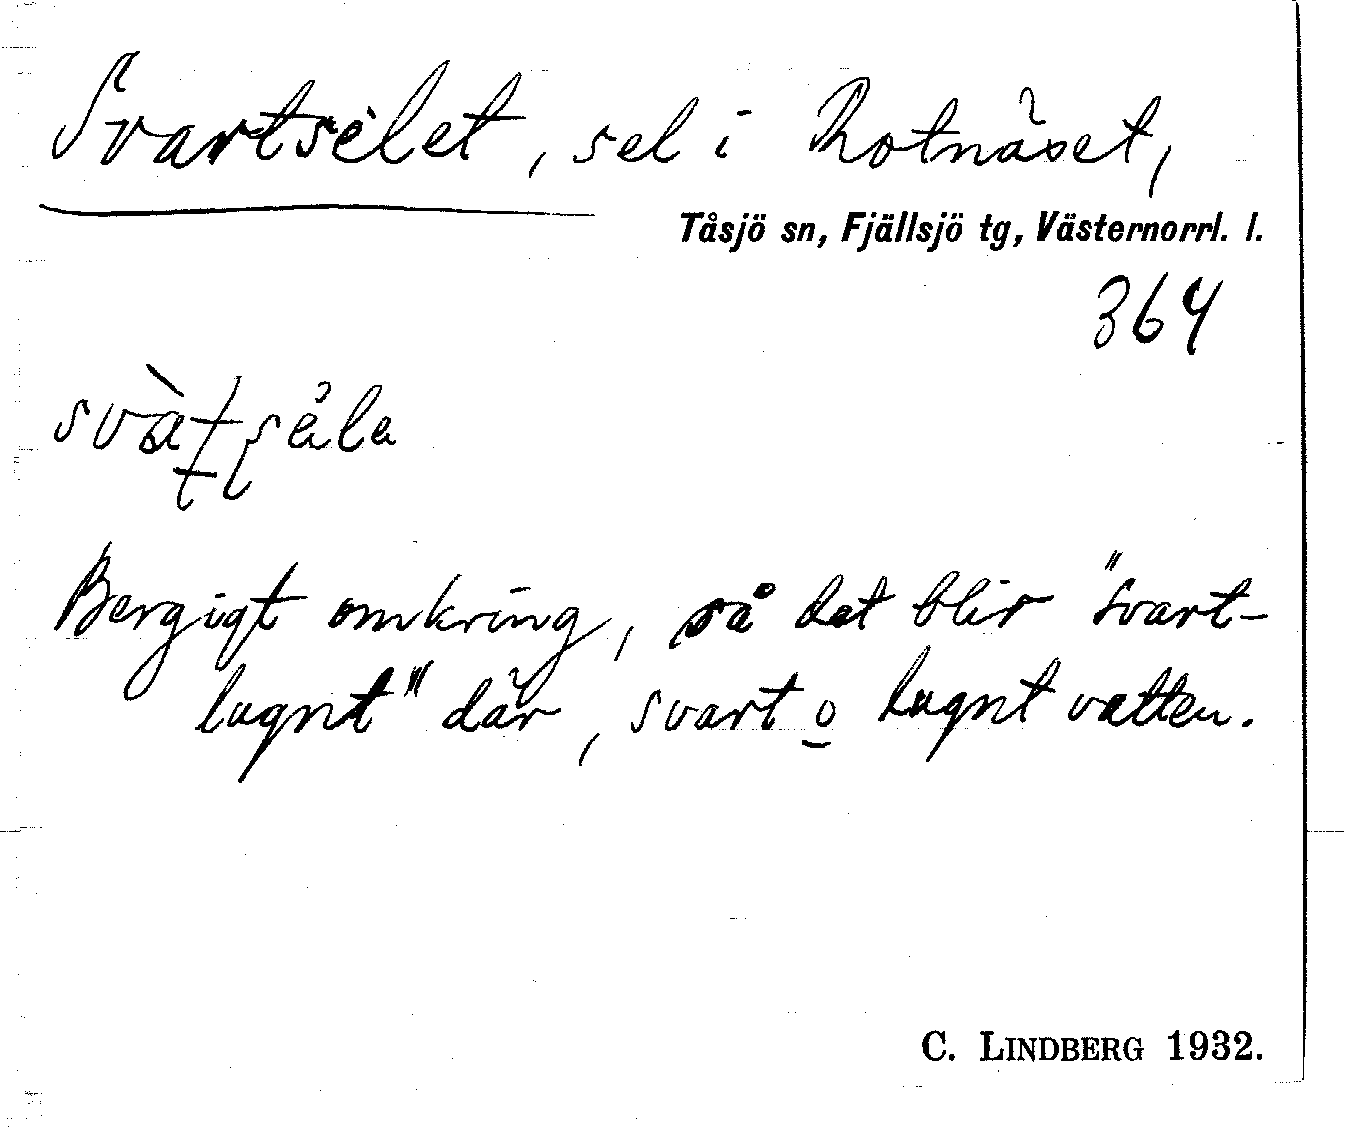 Svartselet, sel i Rotnäset,
Tåsjö sn, Fjällsjö tg, Västernorrl. l.
364
Bergigt omkring, så det blir "svart-
lugnt" där, svart o lugnt vatten.
C. LINDBERG 1932.